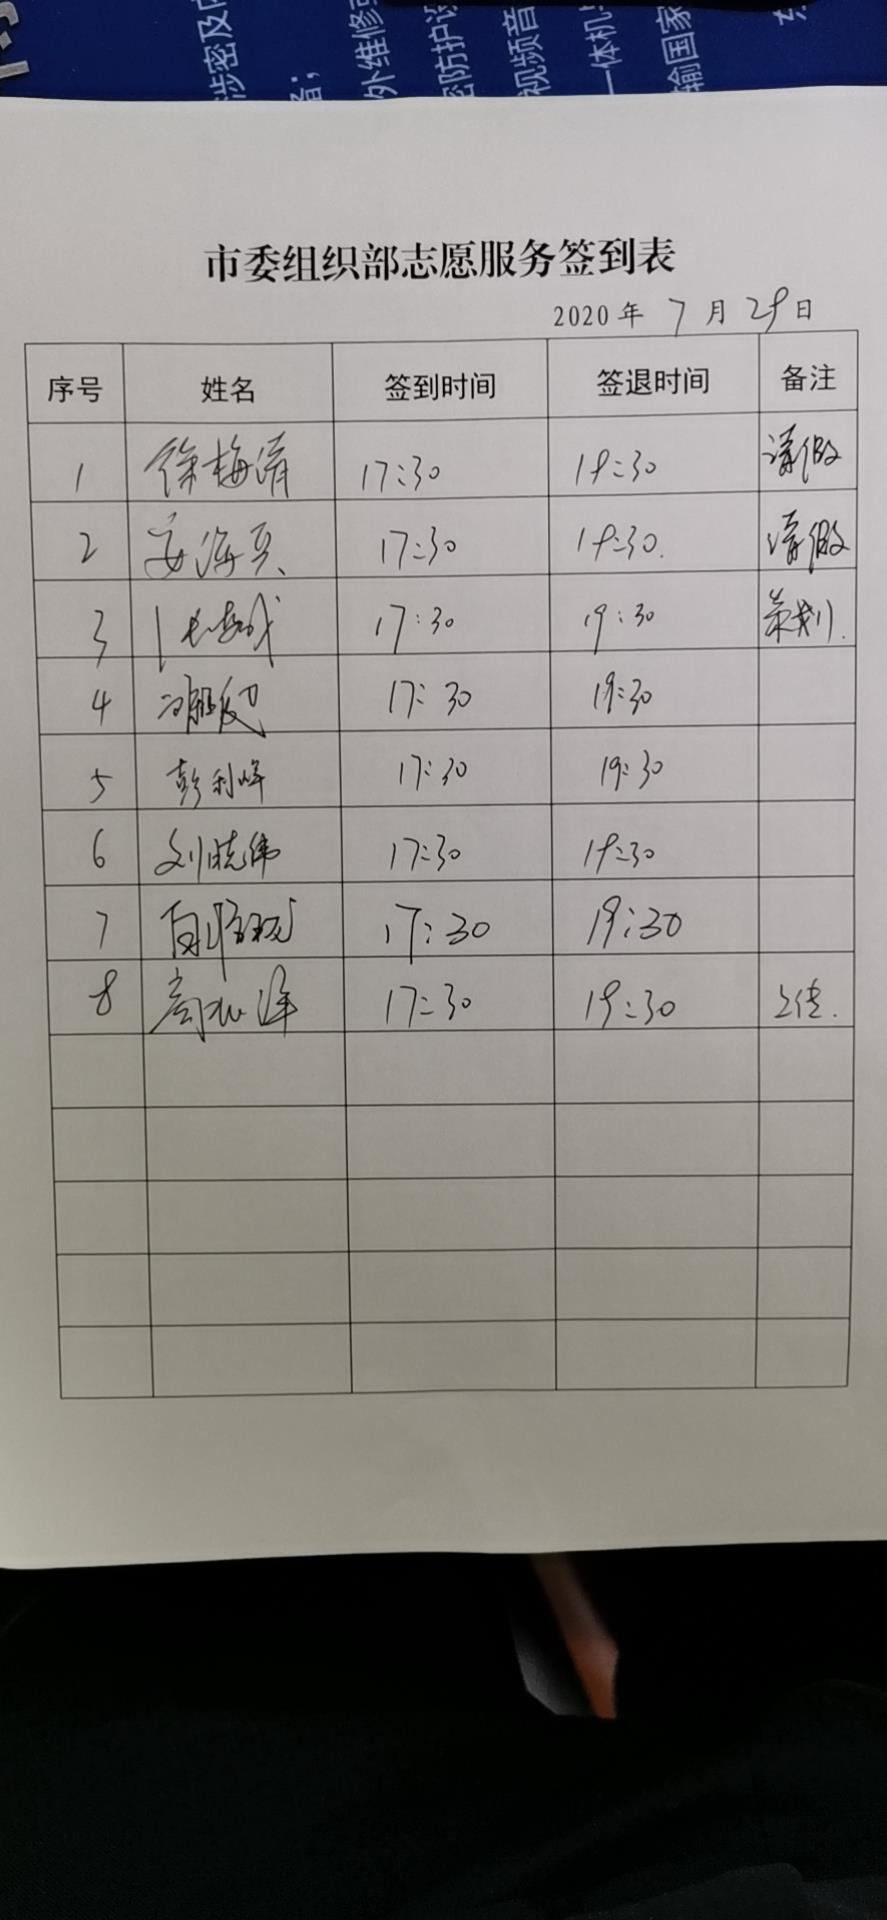 涉密及
外维修
密防护设
视频音
一体机
输国家
市委组织部志愿服务签到表
2020年 7月29日
序号 姓名 签到时间 签退时间 备注
1 徐梅清 17:30 19:30 请假
2 17:30 19:30. 请假
3 17:30 19:30 策划.
4 17:30 19:30
5 彭利峰 17:30 19:30
6 刘晓伟 17:30 19:30
7 17:30 19:30
8 17:30 19:30 上传.